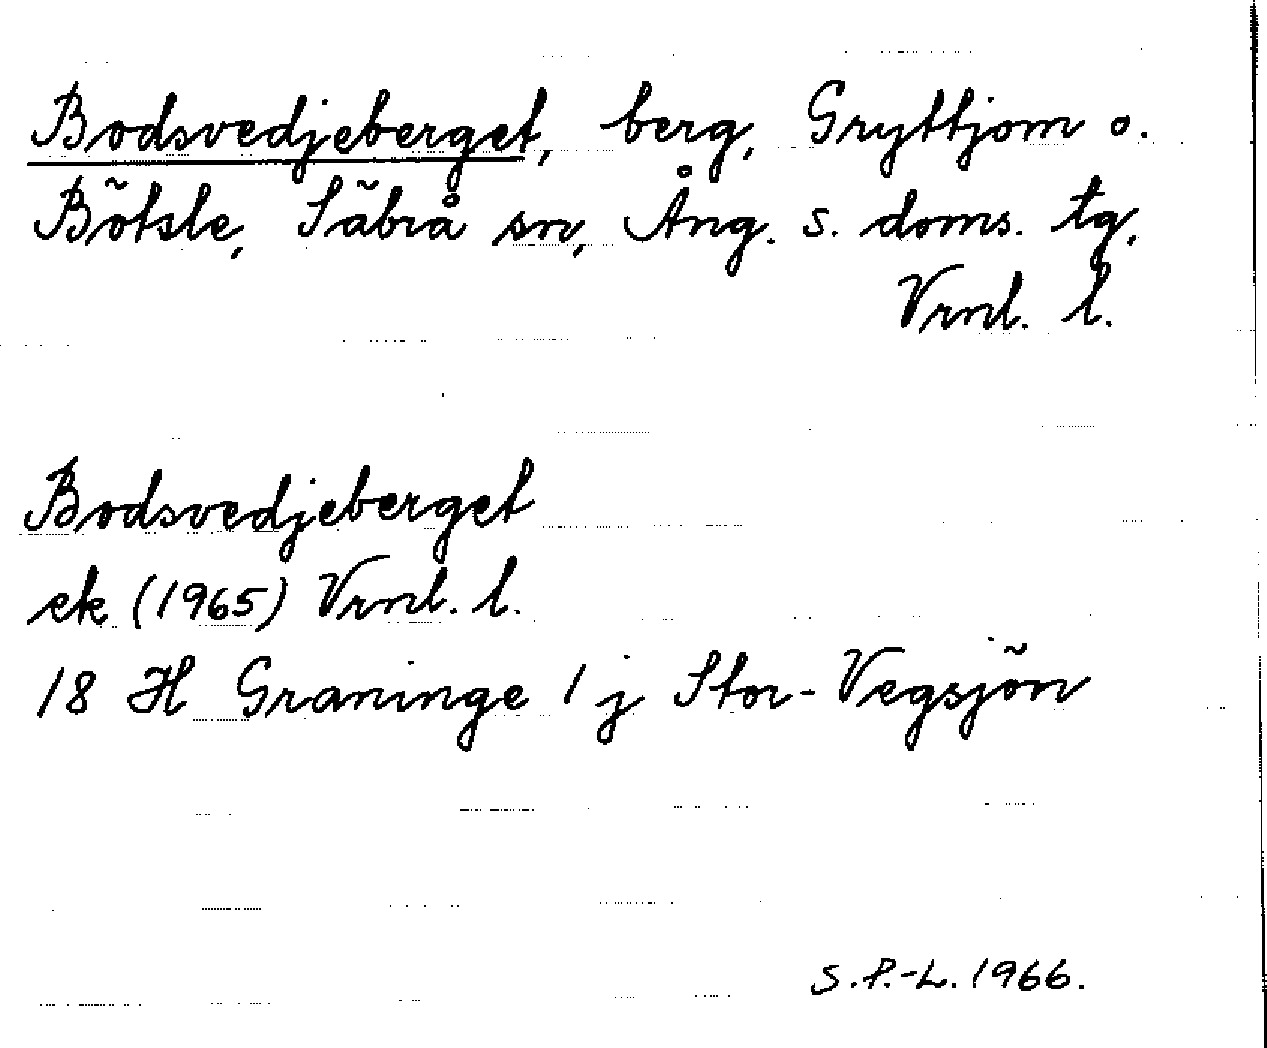 Bodsvedjeberget, berg, Gryttjom o.
Bölsle, Säbrå sn, Ång. s. doms. tg,
Vrnl. l.
Bodsvedjeberget
ek (1965) Vrnl. l.
18 H Graninge 1 j Stor-Vegsjön
S.P.-L. 1966.